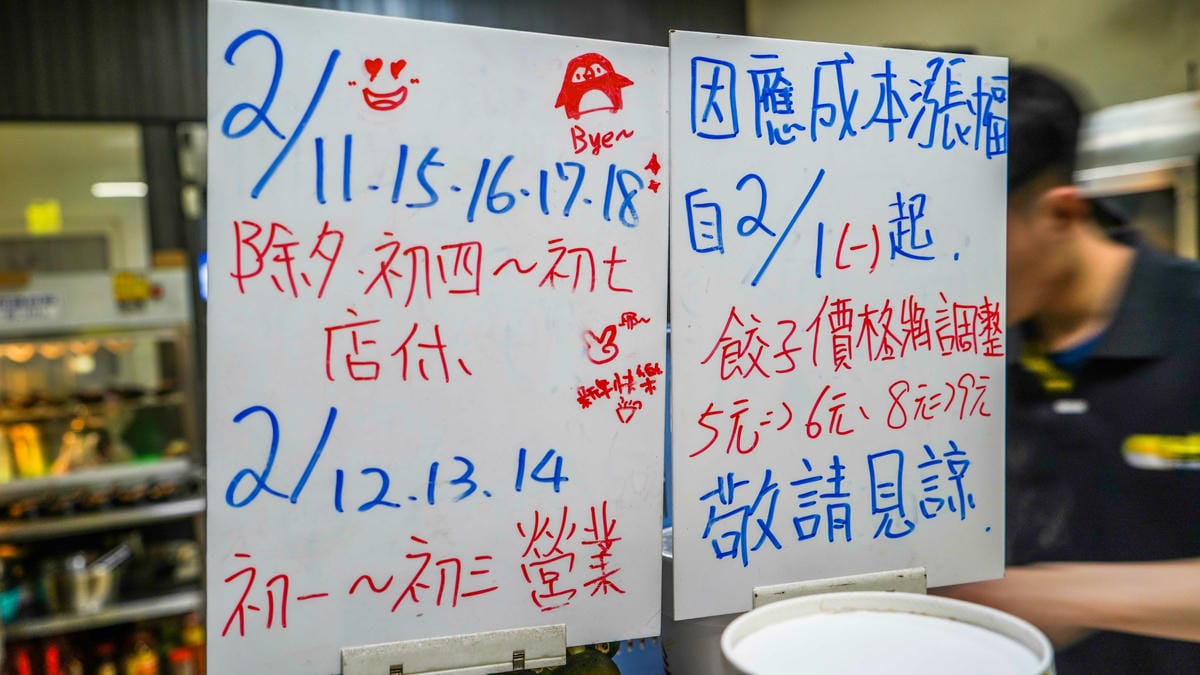 Bye~
2/11.15.16.17.18
除夕.初四～初七
店休
新年快樂
2/12.13.14
初一～初三 營業
因應成本漲幅
自2/1(一)起.
餃子價格將調整
5元=>6元、8元=>9元
敬請見諒.